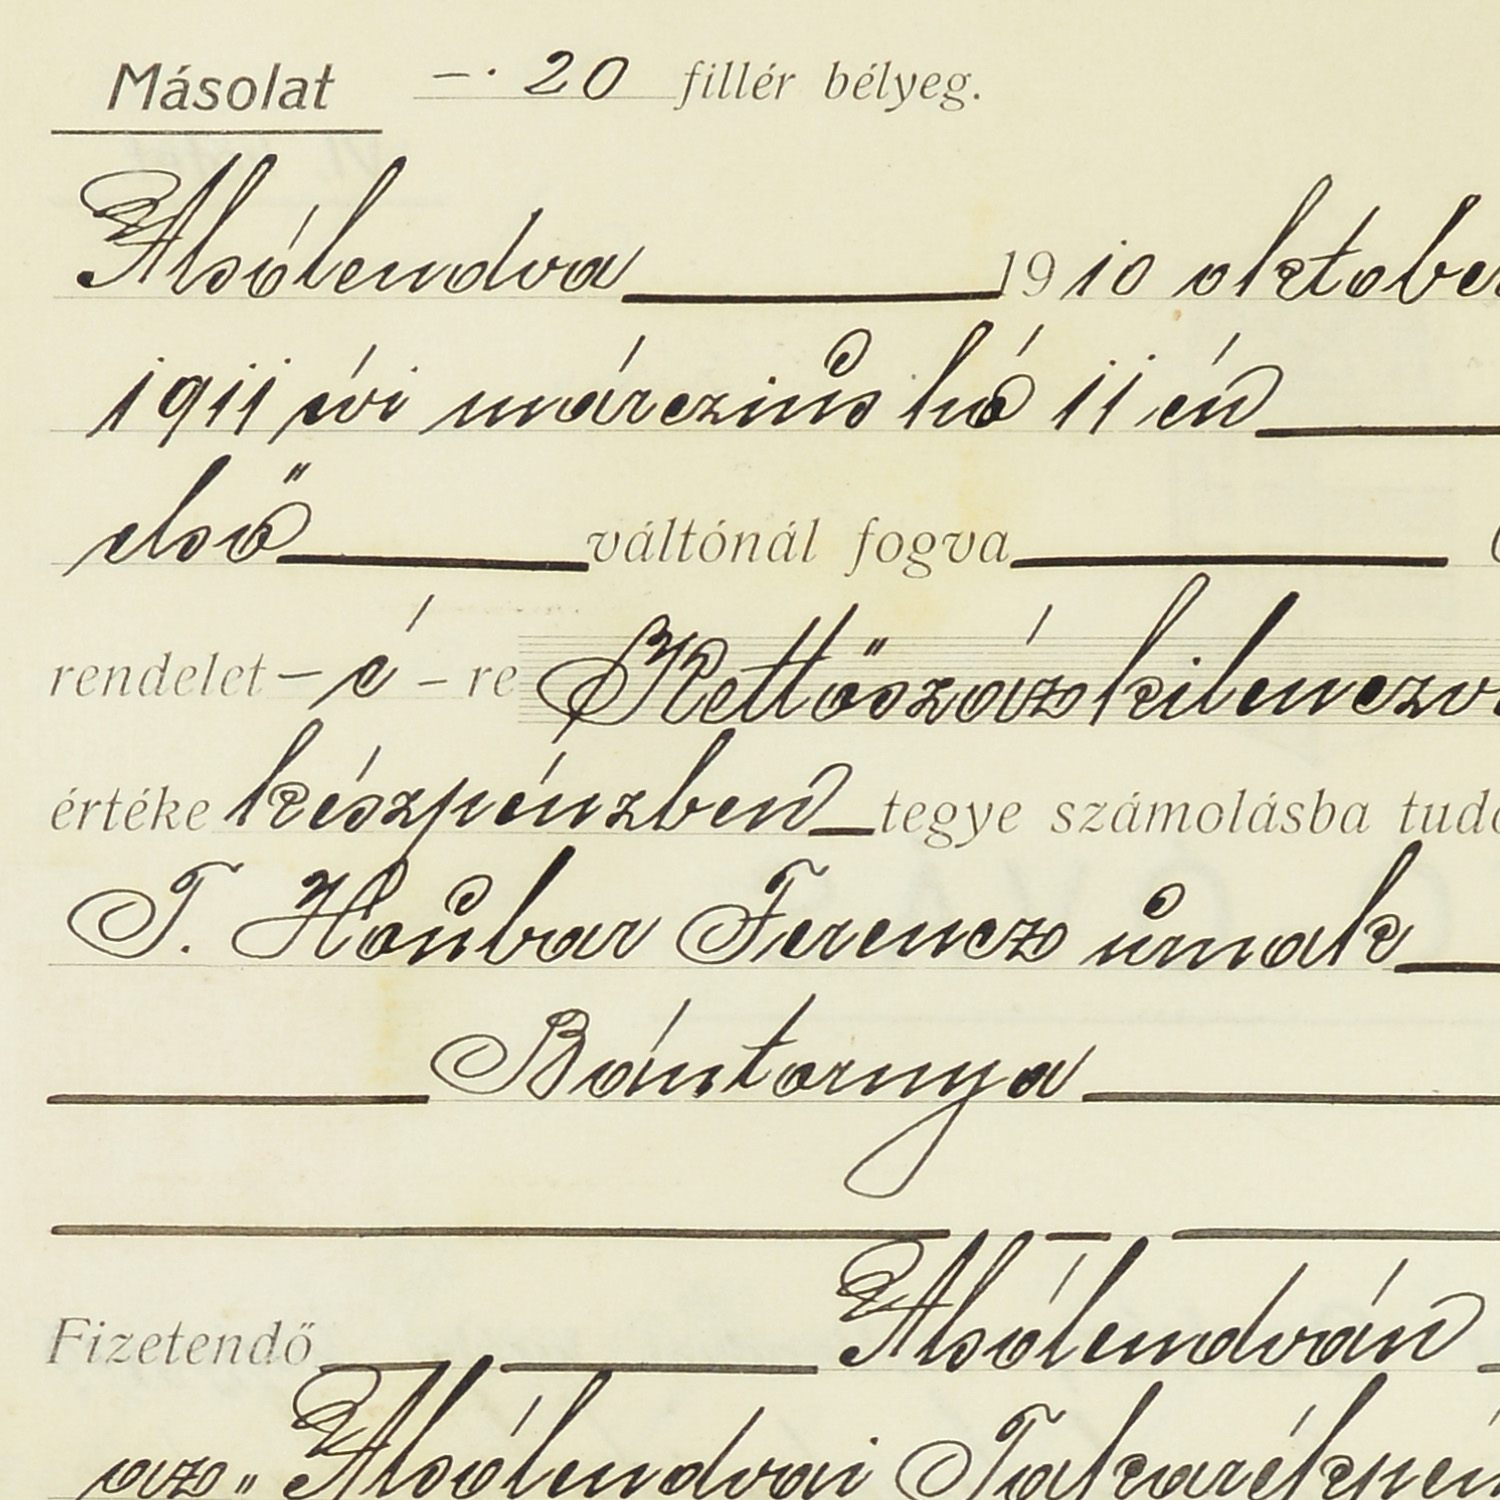 Másolat –· 20 fillér bélyeg.
Alsólendva 1910 oktober
1911 évi márczius hó 11 én
első váltónál fogva
rendelet – é – re Kettőszázkilenczv
értéke készpénzben tegye számolásba tud
T. Houbar Ferencz úrnak
Bántornya
Fizetendő Alsólendván
az „Alsólendvai Takarékpén